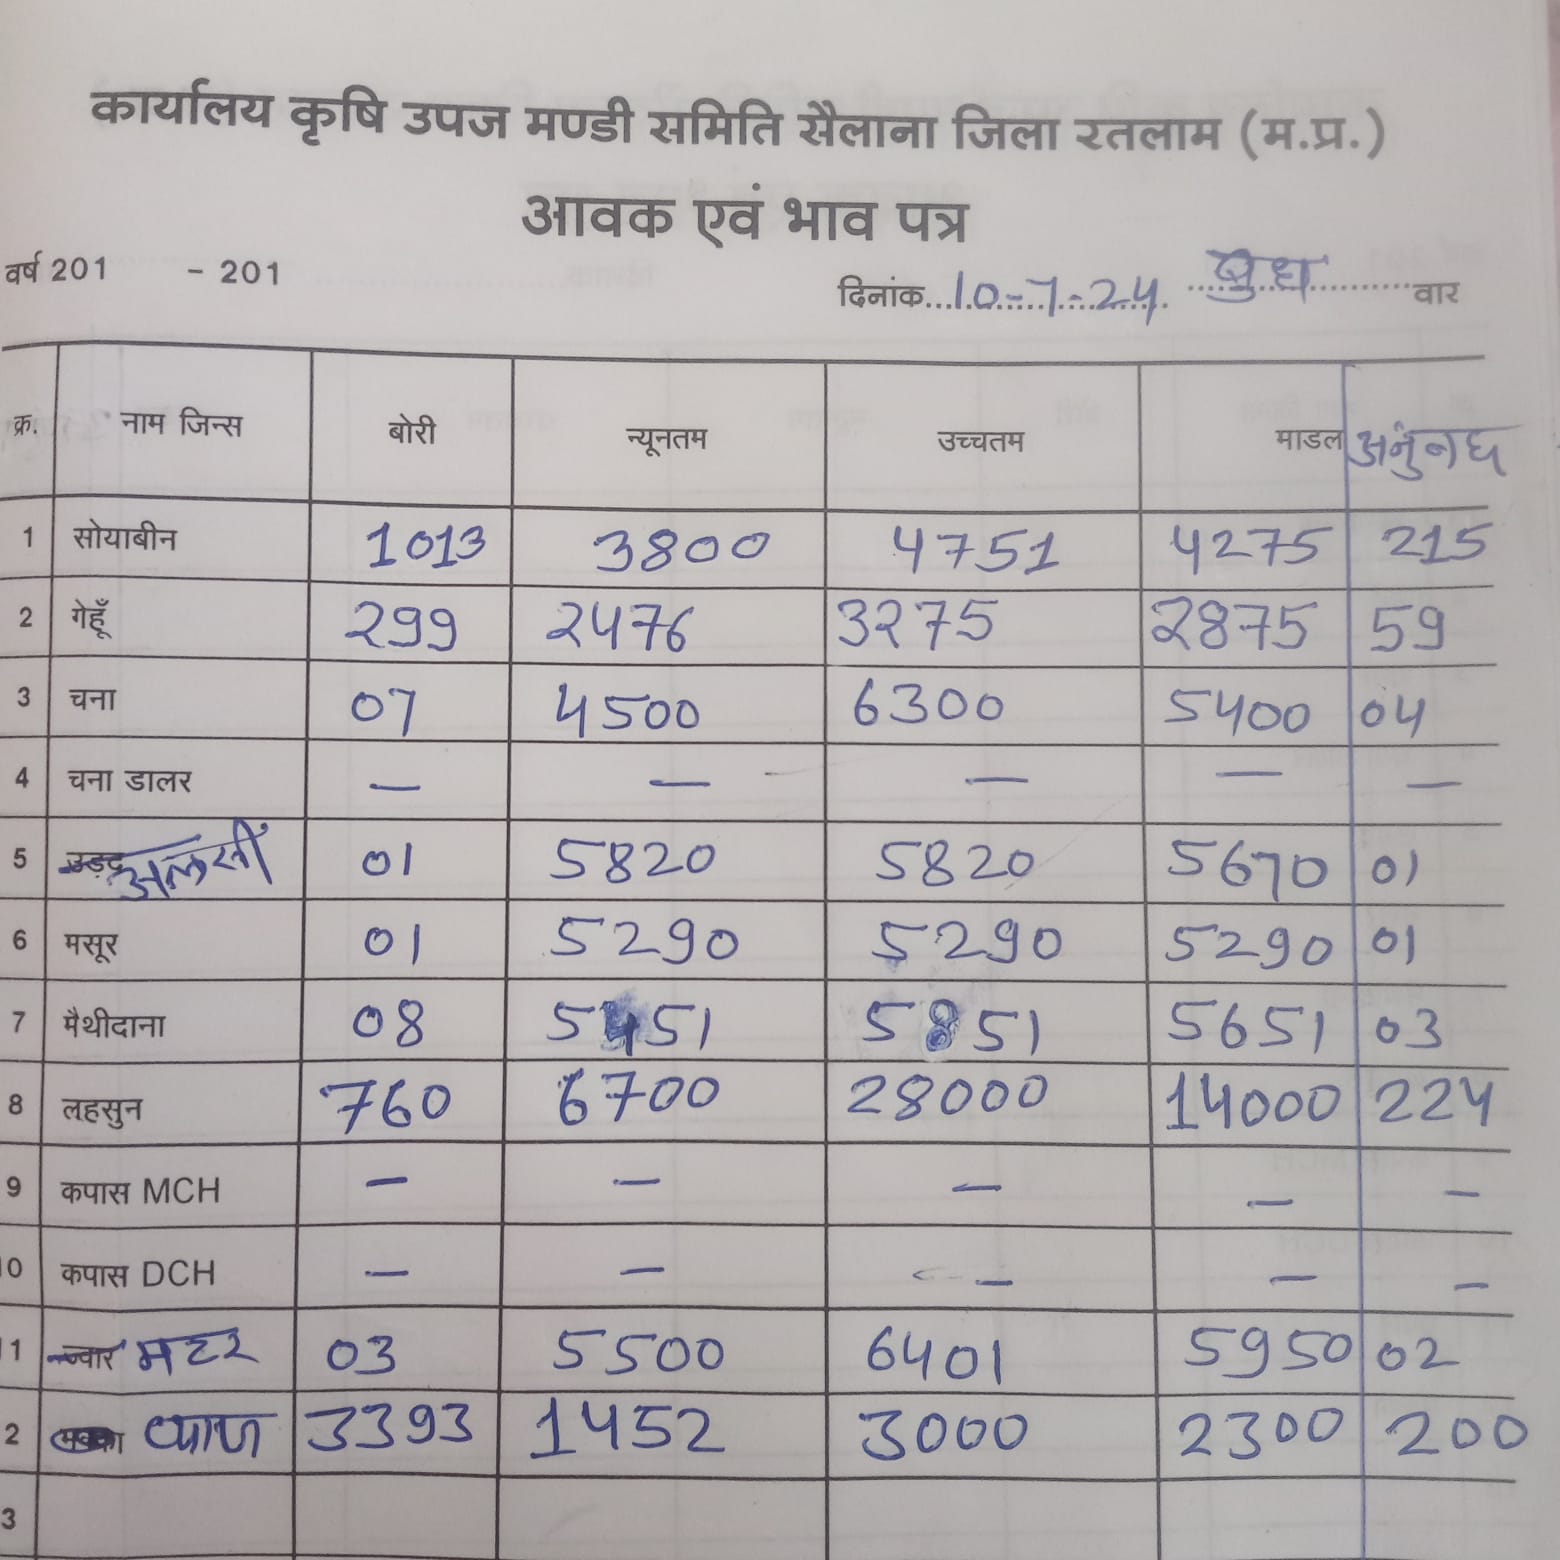 कार्यालय कृषि उपज मण्डी समिति सैलाना जिला रतलाम (म.प्र.)
आवक एवं भाव पत्र
वर्ष 201 - 201
दिनांक...10-7-24. बुध वार
क्र. नाम जिन्स बोरी न्यूनतम उच्चतम माडल अनुंबध
1 सोयाबीन 1013 3800 4751 4275 215
2 गेहूँ 299 2476 3275 2875 59
3 चना 07 4500 6300 5400 04
4 चना डालर — — — — —
5 उड़द अलसी 01 5820 5820 5670 01
6 मसूर 01 5290 5290 5290 01
7 मैथीदाना 08 5451 5851 5651 03
8 लहसुन 760 6700 28000 14000 224
9 कपास MCH — — — — —
10 कपास DCH — — — — —
11 ज्वार मटर 03 5500 6401 5950 02
2 मक्का प्याज 3393 1452 3000 2300 200
3